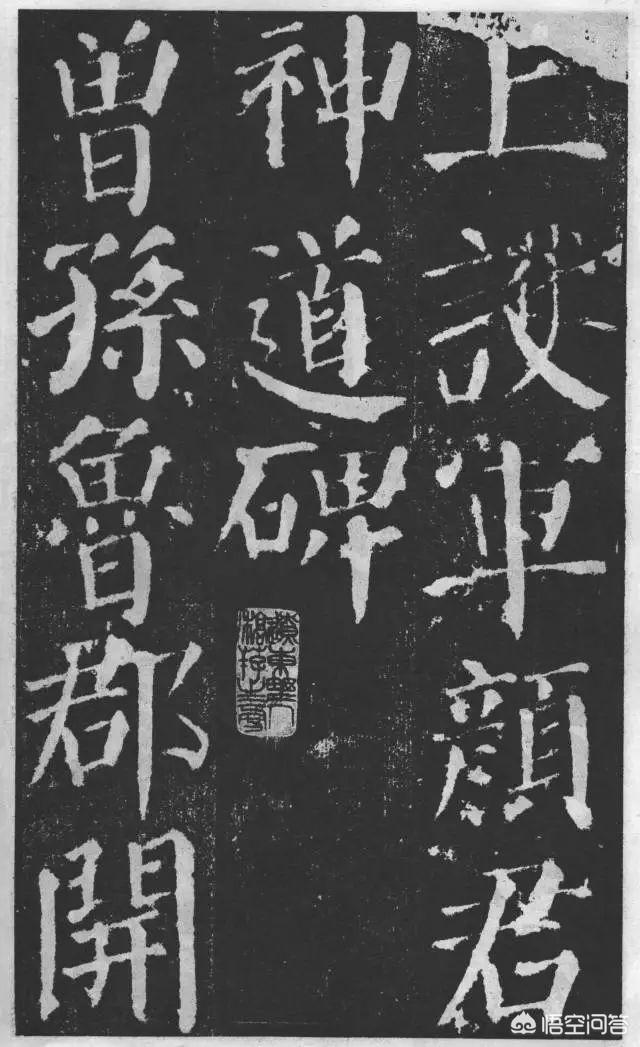 上護軍顔君
神道碑
曾孫魯郡開
悟空问答